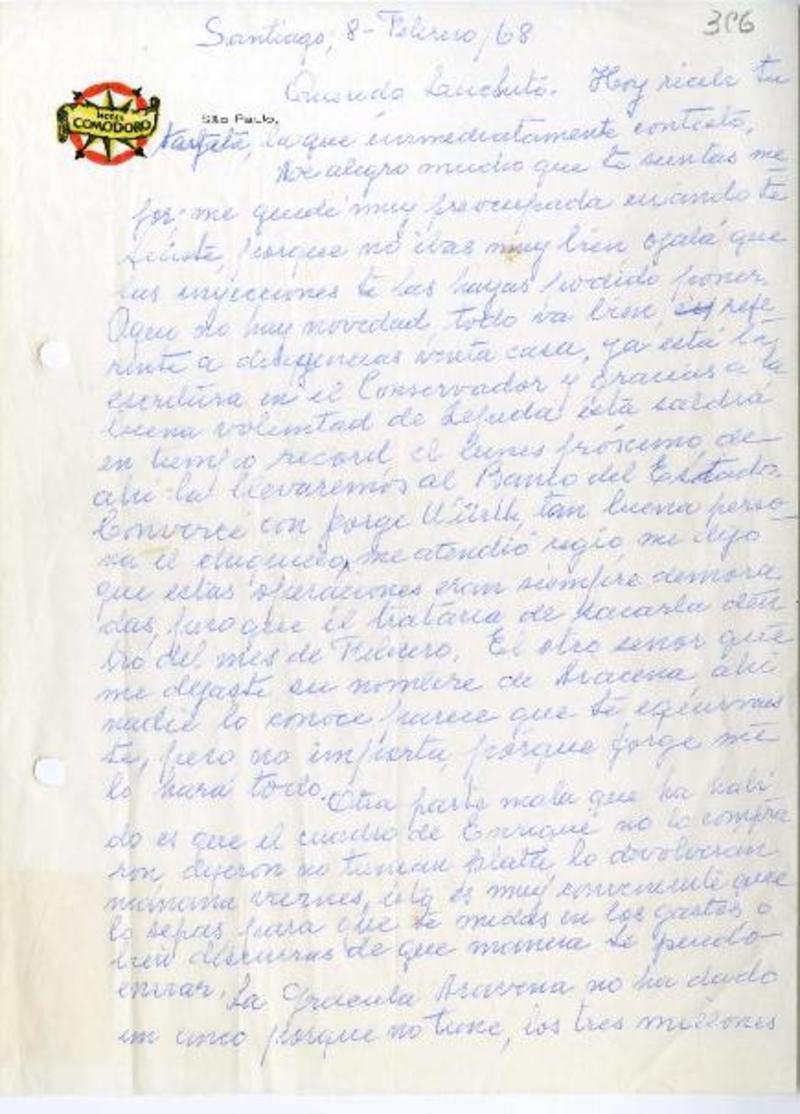 306
Santiago, 8 - Febrero, 68
HOTEL
COMODORO
São Paulo,
Querido Lanchito. Hoy recibí tu
tarjeta, la que inmediatamente contesto,
Me alegro mucho que te sientas me
jor, me quedé muy preocupada cuando te
fuiste, porque no ibas muy bien ojalá que
las inyecciones te las hayas podido poner.
Aquí no hay novedad, todo va bien, refe
rente a diligencias venta casa, ya está la
escritura en el Conservador y gracias a la
buena voluntad de Zepeda ésta saldrá
en tiempo record el lunes próximo, de
ahí la llevaremos al Banco del Estado.
Conversé con Jorge Würth, tan buena perso
na el me atendió regio, me dijo
que estas operaciones eran siempre demora
das, pero que él trataría de sacarla den
tro del mes de Febrero. El otro señor que
me dejaste su nombre de Aracena ahí
nadie lo conoce parece que te equivocas
te, pero no importa, porque Jorge me
lo hará todo.
Otra parte mala que ha habi
do es que el cuadro de Enrique no lo compra
ron dijeron no tenían plata lo devolverán
mañana viernes, ésta es muy conveniente que
lo sepas para que te midas en los gastos o
bien discurras de que manera te puedo
enviar. La Graciela Aravena no ha dado
un cinco porque no tiene, los tres millones